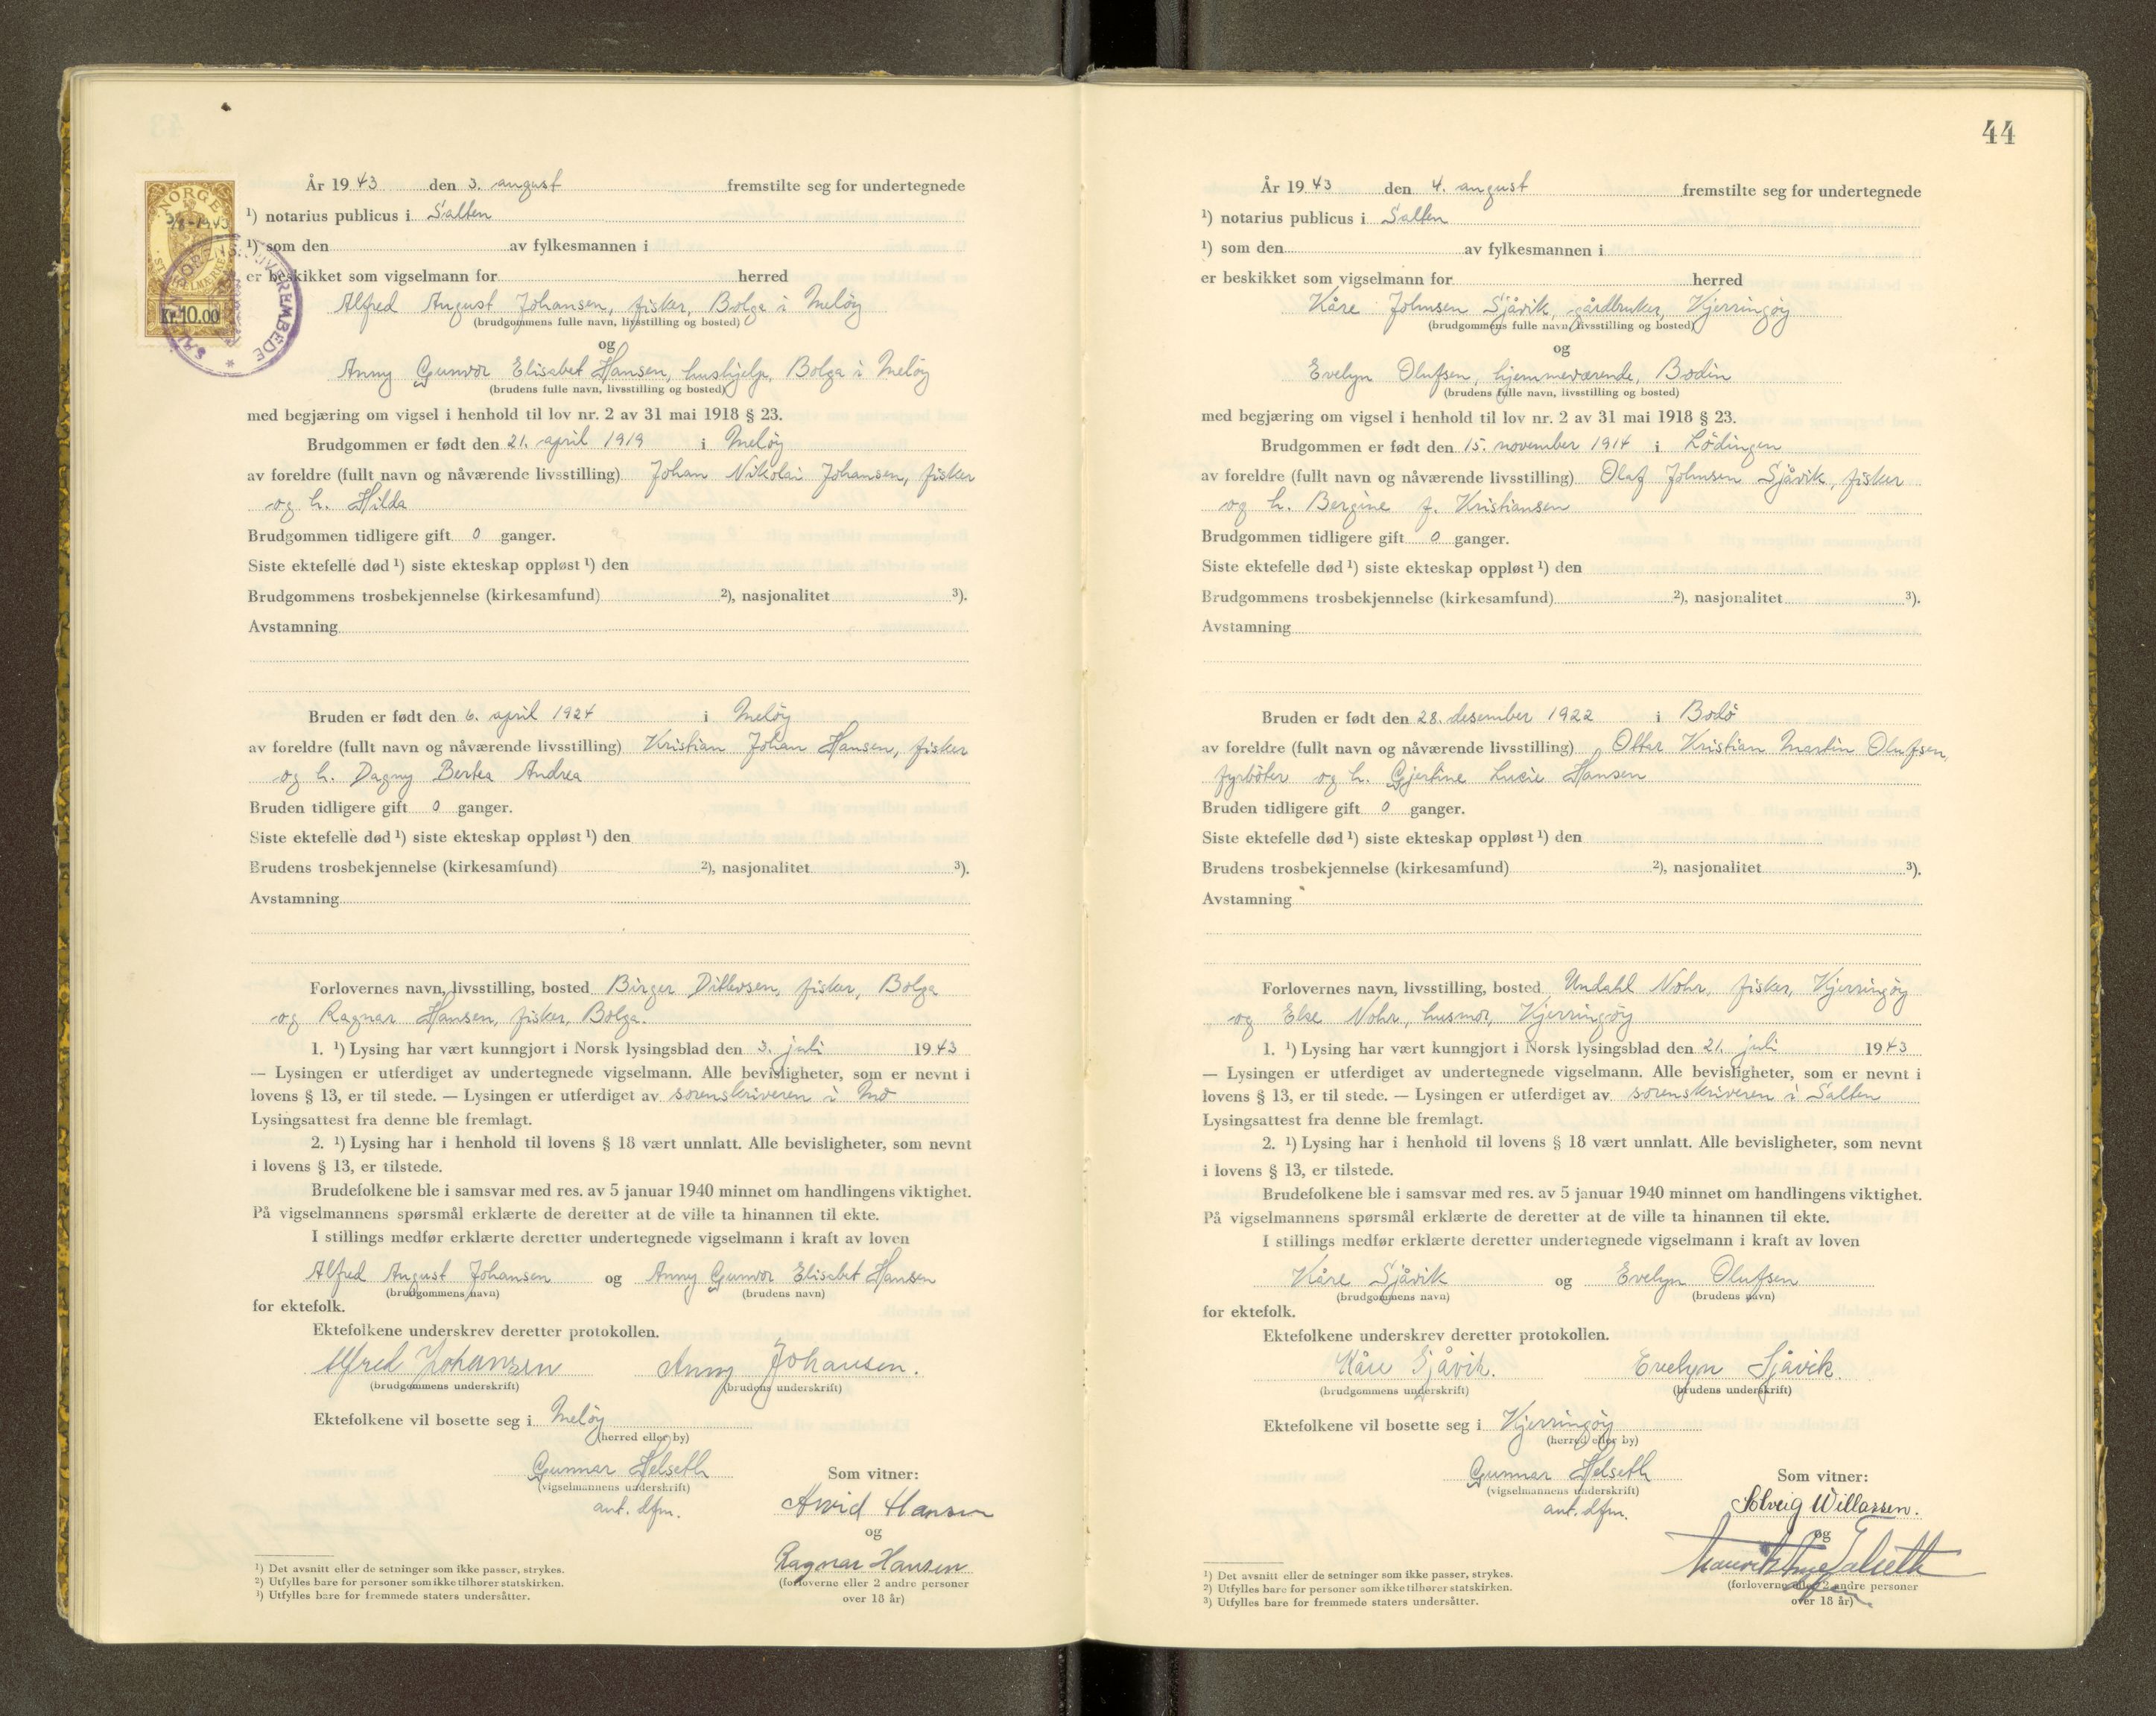 År 1943 den 3. august fremstilte seg for undertegnede
¹) notarius publicus i Salten
¹) som den av fylkesmannen i
er beskikket som vigselmann for herred
Alfred August Johansen, fisker, Bolga i Meløy
(brudgommens fulle navn, livsstilling og bosted)
og
Anny Gunvor Elisabet Hansen, hushjelp, Bolga i Meløy
(brudens fulle navn, livsstilling og bosted)
med begjæring om vigsel i henhold til lov nr. 2 av 31 mai 1918 § 23.
Brudgommen er født den 21. april 1919 i Meløy
av foreldre (fullt navn og nåværende livsstilling) Johan Nikolai Johansen, fisker
og h. Hilda
Brudgommen tidligere gift 0 ganger.
Siste ektefelle død ¹) siste ekteskap oppløst ¹) den
Brudgommens trosbekjennelse (kirkesamfund) ²), nasjonalitet ³).
Avstamning
Bruden er født den 6. april 1924 i Meløy
av foreldre (fullt navn og nåværende livsstilling) Kristian Johan Hansen, fisker
og h. Dagny Bertea Andrea
Bruden tidligere gift 0 ganger.
Siste ektefelle død ¹) siste ekteskap oppløst ¹) den
Brudens trosbekjennelse (kirkesamfund) ²), nasjonalitet ³).
Avstamning
Forlovernes navn, livsstilling, bosted Birger Ditlevsen, fisker, Bolga
og Ragnar Hansen, fisker, Bolga.
1. ¹) Lysing har vært kunngjort i Norsk lysingsblad den 3. juli 1943
— Lysingen er utferdiget av undertegnede vigselmann. Alle bevisligheter, som er nevnt i
lovens § 13, er til stede. — Lysingen er utferdiget av sorenskriveren i Mo
Lysingsattest fra denne ble fremlagt.
2. ¹) Lysing har i henhold til lovens § 18 vært unnlatt. Alle bevisligheter, som nevnt
i lovens § 13, er tilstede.
Brudefolkene ble i samsvar med res. av 5 januar 1940 minnet om handlingens viktighet.
På vigselmannens spørsmål erklærte de deretter at de ville ta hinannen til ekte.
I stillings medfør erklærte deretter undertegnede vigselmann i kraft av loven
Alfred August Johansen og Anny Gunvor Elisabet Hansen
(brudgommens navn) (brudens navn)
for ektefolk.
Ektefolkene underskrev deretter protokollen.
Alfred Johansen Anny Johansen.
(brudgommens underskrift) (brudens underskrift)
Ektefolkene vil bosette seg i Meløy
(herred eller by)
Gunnar Helseth Som vitner:
(vigselmannens underskrift)
aut. dfm. Arvid Hansen
og
Ragnar Hansen
(forloverne eller 2 andre personer
over 18 år)
¹) Det avsnitt eller de setninger som ikke passer, strykes.
²) Utfylles bare for personer som ikke tilhører statskirken.
³) Utfylles bare for fremmede staters undersåtter.
NORGE
3/8-1943
Kr 10.00
44
År 1943 den 4. august fremstilte seg for undertegnede
¹) notarius publicus i Salten
¹) som den av fylkesmannen i
er beskikket som vigselmann for herred
Kåre Johnsen Sjåvik, gårdbruker, Kjerringøy
(brudgommens fulle navn, livsstilling og bosted)
og
Evelyn Olufsen, hjemmeværende, Bodin
(brudens fulle navn, livsstilling og bosted)
med begjæring om vigsel i henhold til lov nr. 2 av 31 mai 1918 § 23.
Brudgommen er født den 15. november 1914 i Lödingen
av foreldre (fullt navn og nåværende livsstilling) Olaf Johnsen Sjåvik, fisker
og h. Bergine f. Kristiansen
Brudgommen tidligere gift 0 ganger.
Siste ektefelle død ¹) siste ekteskap oppløst ¹) den
Brudgommens trosbekjennelse (kirkesamfund) ²), nasjonalitet ³).
Avstamning
Bruden er født den 28. desember 1922 i Bodö
av foreldre (fullt navn og nåværende livsstilling) Ottar Kristian Martin Olufsen,
fyrböter og h. Gjertine Lucie Hansen
Bruden tidligere gift 0 ganger.
Siste ektefelle død ¹) siste ekteskap oppløst ¹) den
Brudens trosbekjennelse (kirkesamfund) ²), nasjonalitet ³).
Avstamning
Forlovernes navn, livsstilling, bosted Undahl Nohr, fisker, Kjerringøy
og Else Nohr, husmor, Kjerringøy
1. ¹) Lysing har vært kunngjort i Norsk lysingsblad den 21. juli 1943
— Lysingen er utferdiget av undertegnede vigselmann. Alle bevisligheter, som er nevnt i
lovens § 13, er til stede. — Lysingen er utferdiget av sorenskriveren i Salten
Lysingsattest fra denne ble fremlagt.
2. ¹) Lysing har i henhold til lovens § 18 vært unnlatt. Alle bevisligheter, som nevnt
i lovens § 13, er tilstede.
Brudefolkene ble i samsvar med res. av 5 januar 1940 minnet om handlingens viktighet.
På vigselmannens spørsmål erklærte de deretter at de ville ta hinannen til ekte.
I stillings medfør erklærte deretter undertegnede vigselmann i kraft av loven
Kåre Sjåvik og Evelyn Olufsen
(brudgommens navn) (brudens navn)
for ektefolk.
Ektefolkene underskrev deretter protokollen.
Kåre Sjåvik. Evelyn Sjåvik.
(brudgommens underskrift) (brudens underskrift)
Ektefolkene vil bosette seg i Kjerringøy
(herred eller by)
Gunnar Helseth Som vitner:
(vigselmannens underskrift)
aut. dfm. Solveig Willassen.
og
(forloverne eller 2 andre personer
over 18 år)
¹) Det avsnitt eller de setninger som ikke passer, strykes.
²) Utfylles bare for personer som ikke tilhører statskirken.
³) Utfylles bare for fremmede staters undersåtter.